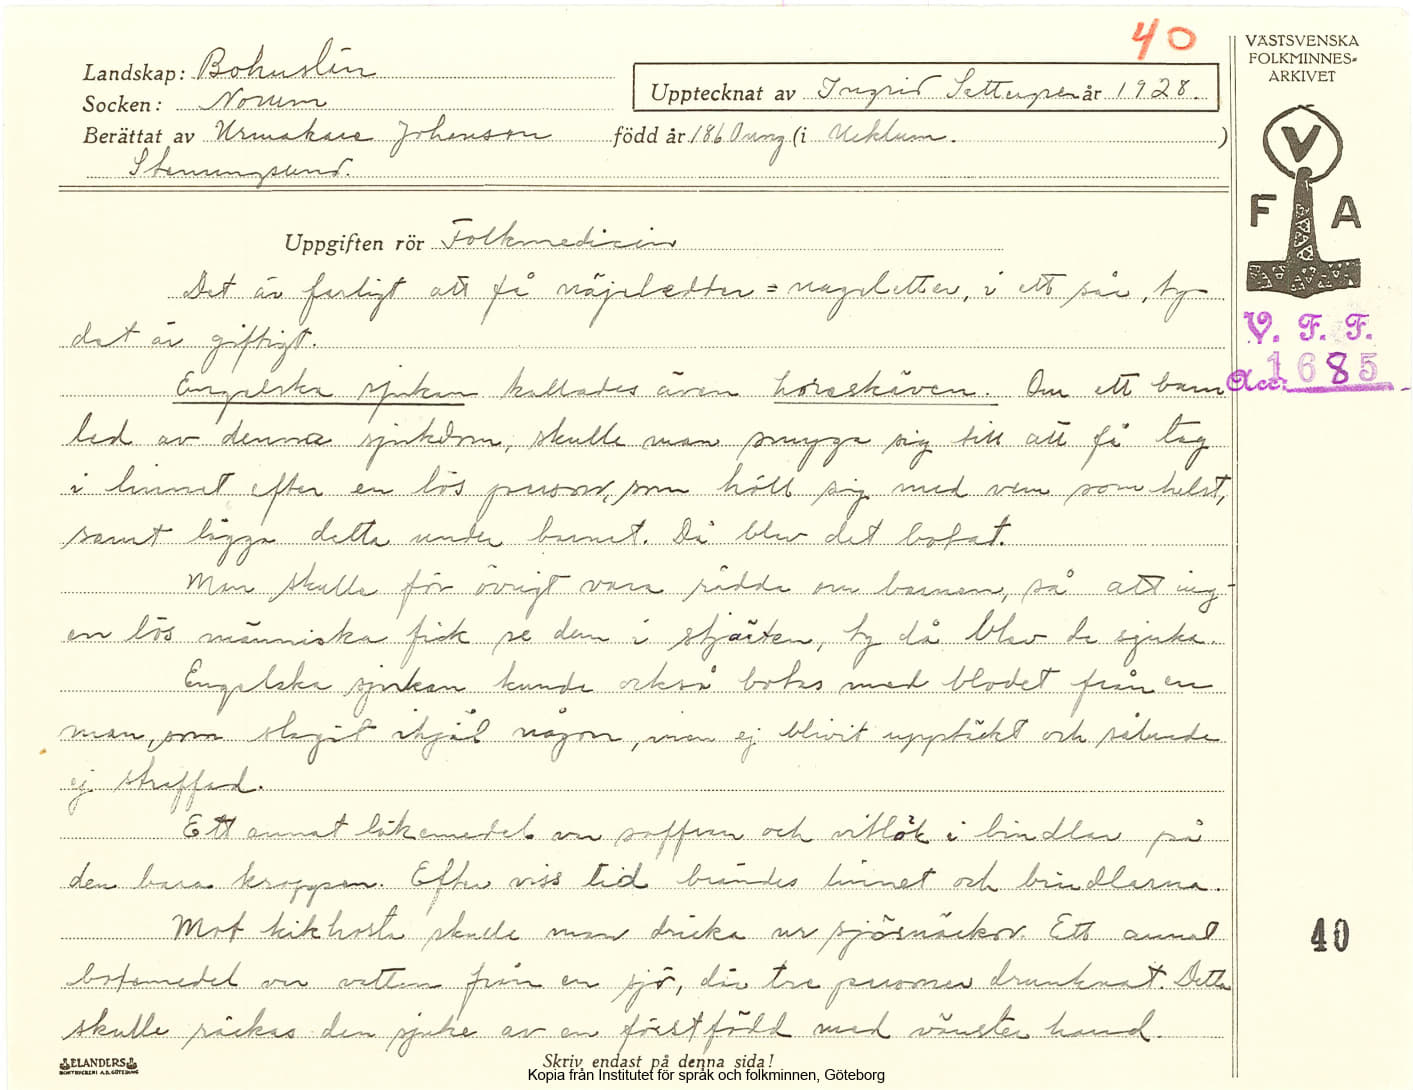 40
Landskap: Bohuslän
Socken: Norum
Upptecknat av Ingrid Settergren år 1928.
Berättat av Urmakare Johanson född år 1860 ung (i Ucklum.)
Stenungsund.
VÄSTSVENSKA
FOLKMINNES-
ARKIVET
V
F A
V. F. F.
Acc: 1685
Uppgiften rör Folkmedicin
Det är farligt att få näjelædder = nageletter, i ett sår, ty
det är giftigt.
Engelska sjukan kallades även horeskäven. Om ett barn
led av denna sjukdom, skulle man smyga sig till att få tag
i linnet efter en lös person, som höll sig med vem som helst,
samt lägga detta under barnet. Då blev det botat.
Man skulle för övrigt vara rädda om barnen, så att ing-
en lös människa fick se dem i stjärten, ty då blev de sjuka.
Engelska sjukan kunde också botas med blodet från en
man, som slagit ihjäl någon, men ej blivit upptäckt och således
ej straffad.
Ett annat läkemedel var saffran och vitlök i bindlar på
den bara kroppen. Efter viss tid brändes linnet och bindlarna.
Mot kikhosta skulle man dricka ur sjösnäckor. Ett annat
botemedel var vatten från en sjö, där tre personer drunknat. Detta
skulle räckas den sjuke av en förstfödd med vänster hand.
40
ELANDERS
BOKTRYCKERI A.B. GÖTEBORG
Skriv endast på denna sida!
Kopia från Institutet för språk och folkminnen, Göteborg